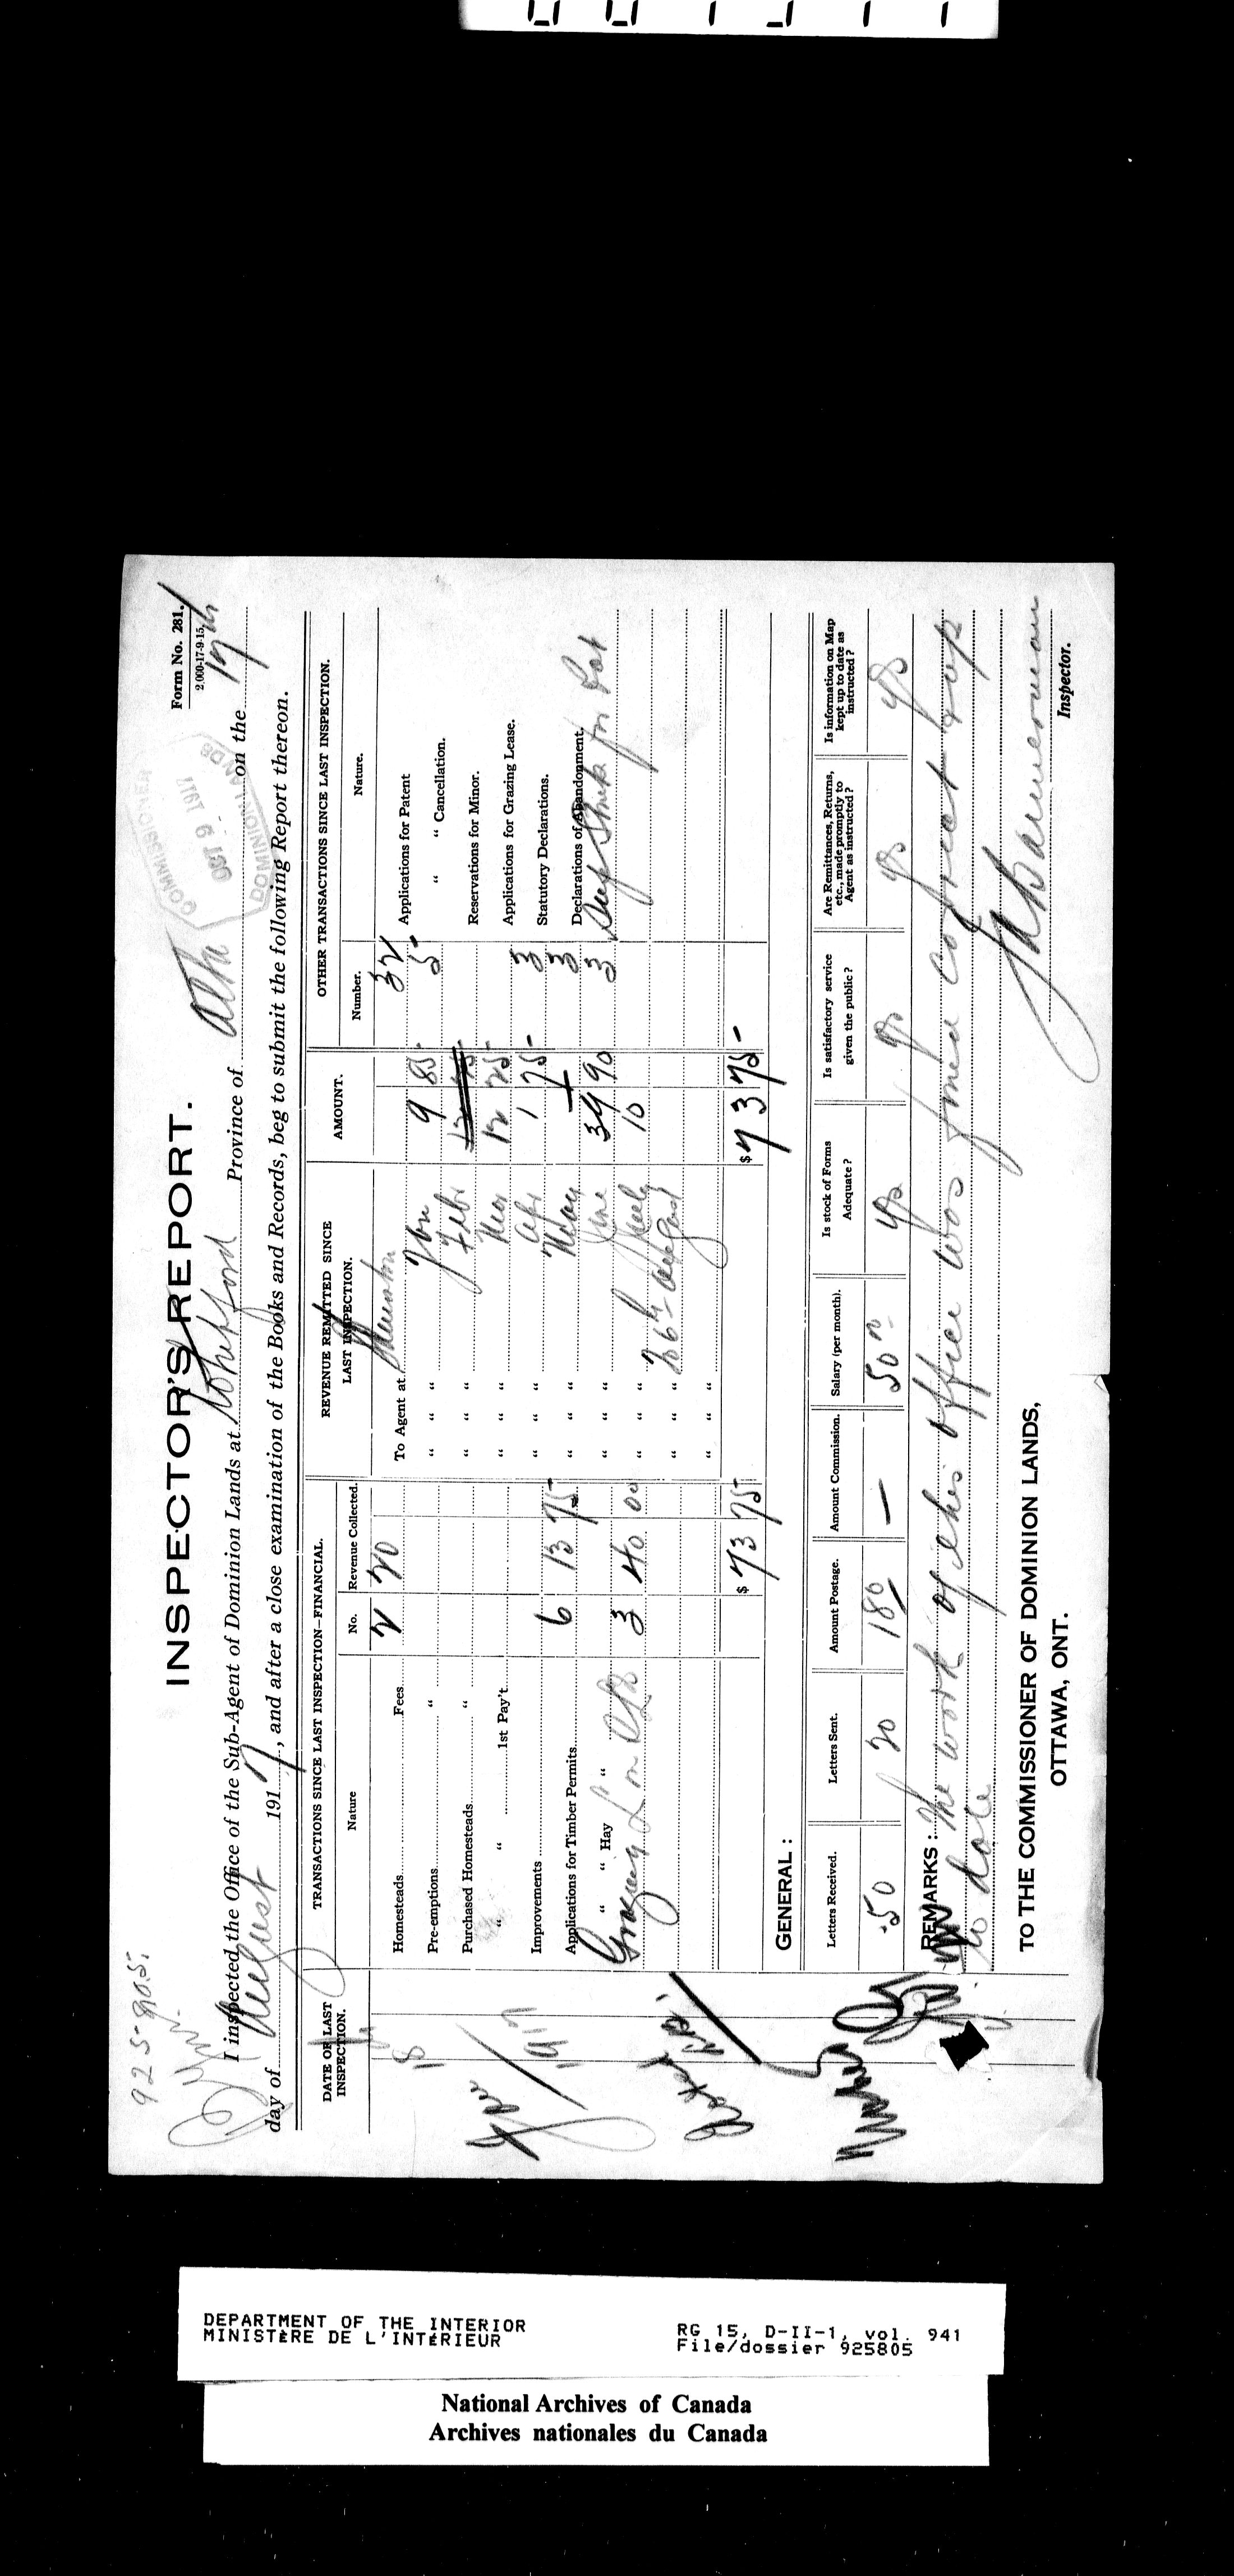 Form No. 281.
2,000-17-9-15.
925805
INSPECTOR'S REPORT.
COMMISSIONER
OCT 9 1917
DOMINION LANDS
I inspected the Office of the Sub-Agent of Dominion Lands at Province of Alta on the 17th
day of August 1917, and after a close examination of the Books and Records, beg to submit the following Report thereon.
DATE OF LAST INSPECTION.
TRANSACTIONS SINCE LAST INSPECTION—FINANCIAL.
REVENUE REMITTED SINCE LAST INSPECTION.
AMOUNT.
OTHER TRANSACTIONS SINCE LAST INSPECTION.
Nature No. Revenue Collected. Number. Nature.
18
1917
Homesteads Fees 2 20 To Agent at 32 Applications for Patent
Pre-emptions " " " " Jan 9 85 5 " " Cancellation.
Purchased Homesteads " " " " Feb Reservations for Minor.
" " 1st Pay't " " " Mar 12 25 Applications for Grazing Lease.
Improvements " " " Apr 1 75 3 Statutory Declarations.
Applications for Timber Permits 6 13 75 " " " May 3 Declarations of Abandonment.
" " Hay " " " " June 39 90 3
Grazing 3 40 00 " " " July 10
" " " August
" " "
$ 73 75 $ 73 75
GENERAL:
Letters Received. Letters Sent. Amount Postage. Amount Commission. Salary (per month). Is stock of Forms Adequate? Is satisfactory service given the public? Are Remittances, Returns, etc., made promptly to Agent as instructed? Is information on Map kept up to date as instructed?
50 20 180 — 50 yes yes yes yes
REMARKS: The work of this office was found correct & up
to date
TO THE COMMISSIONER OF DOMINION LANDS,
OTTAWA, ONT.
Inspector.
DEPARTMENT OF THE INTERIOR
MINISTÈRE DE L'INTÉRIEUR
RG 15, D-II-1, vol. 941
File/dossier 925805
National Archives of Canada
Archives nationales du Canada